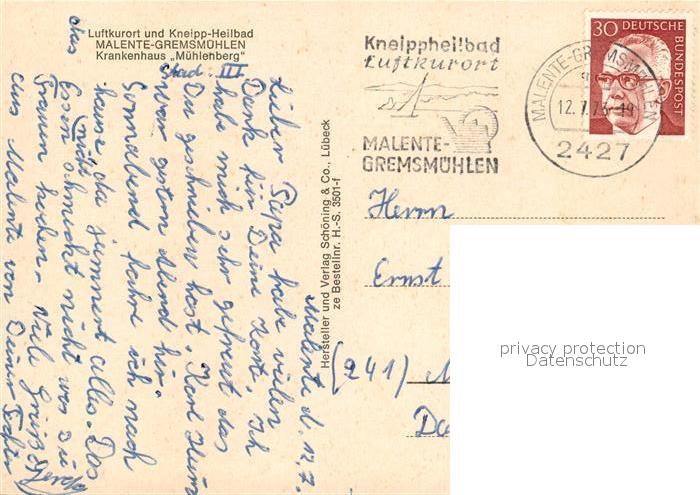 Luftkurort und Kneipp-Heilbad
MALENTE-GREMSMÜHLEN
Krankenhaus „Mühlenberg"
Stad. III
Malente d. 12.7.
Lieber Papa habe vielen
Dank für Deine Karte, ich
habe mich sehr gefreut das
Du geschrieben hast. Karl
war gestern Abend hier.
Sonnabend fahre ich nach
hause da jammert alles. Das
Essen schmeckt nicht
(nicht)
Frauen haben. Viele Grüße
aus Malente von Deine Tochter
Hersteller und Verlag Schöning & Co., Lübeck
ze Bestellnr. H.-S. 3501-f
Kneippheilbad
Luftkurort
MALENTE-
GREMSMÜHLEN
MALENTE-GREMSMÜHLEN
12.7.73-19
2427
30 DEUTSCHE
BUNDESPOST
Herrn
Ernst
(241)
privacy protection
Datenschutz